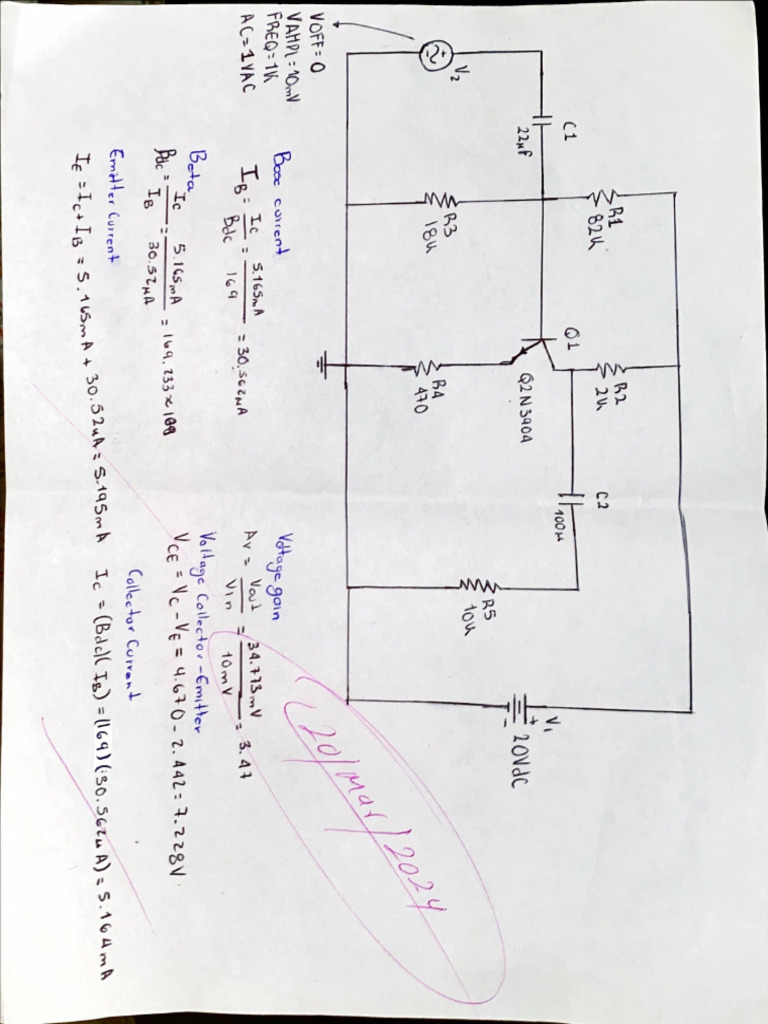 C1
22µF
V2
VOFF=0
VAMPL=10mV
FREQ=1K
AC=1VAC
R1
82K
R3
18K
Q1
Q2N3904
R2
2K
R4
470
C2
100µ
R5
10K
V1
+
-
20Vdc
Base current
IB = Ic / Bdc = 5.165mA / 169 = 30.562µA
Beta
Bdc = Ic / IB = 5.165mA / 30.52µA = 169.233 ≈ 169
Emitter Current
IE = Ic + IB = 5.165mA + 30.52uA = 5.195mA
Voltage gain
Av = Vout / Vin = 34.773mV / 10mV = 3.47
Voltage Collector-Emitter
VCE = VC - VE = 9.670 - 2.442 = 7.228V
Collector Current
Ic = (Bdc)(IB) = (169)(30.562uA) = 5.164mA
20/Mar/2024